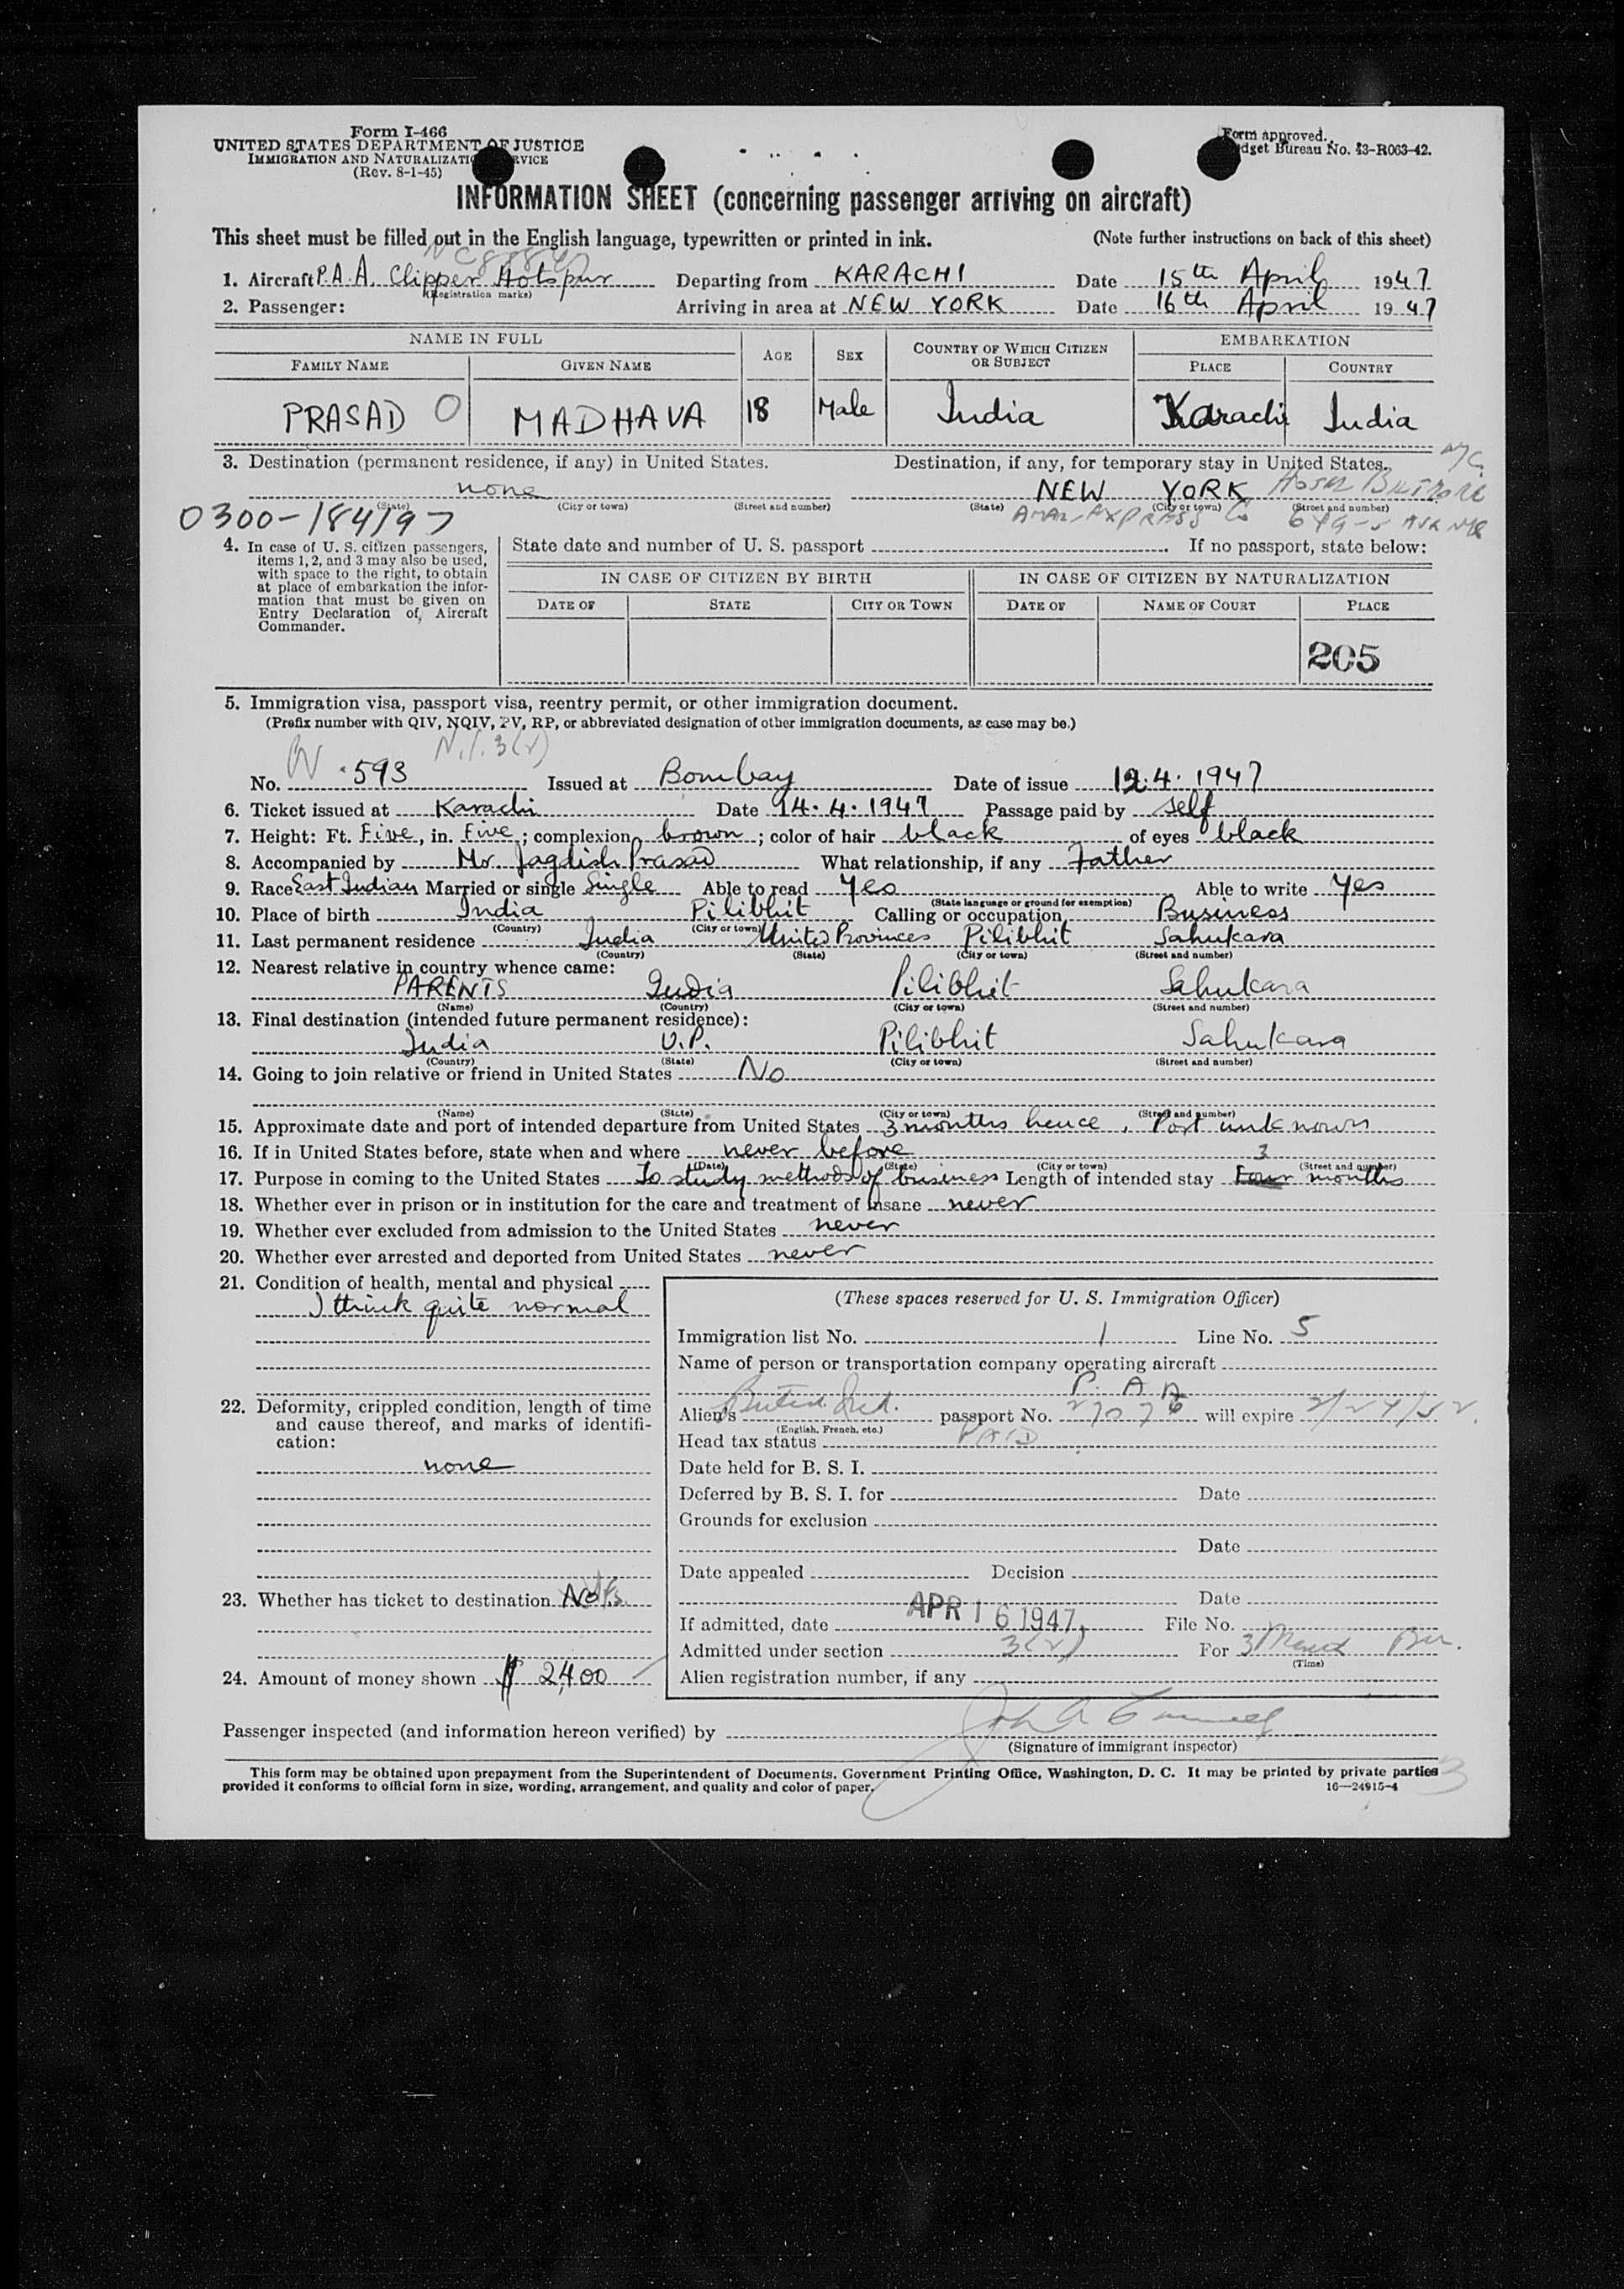 Form I-466
UNITED STATES DEPARTMENT OF JUSTICE
IMMIGRATION AND NATURALIZATION SERVICE
(Rev. 8-1-45)
Form approved.
Budget Bureau No. 43-R063-42.
INFORMATION SHEET (concerning passenger arriving on aircraft)
This sheet must be filled out in the English language, typewritten or printed in ink. (Note further instructions on back of this sheet)
1. Aircraft P.A.A. Clipper Hotspur Departing from KARACHI Date 15th April 1947
(Registration marks)
2. Passenger: Arriving in area at NEW YORK Date 16th April 1947
NAME IN FULL AGE SEX COUNTRY OF WHICH CITIZEN OR SUBJECT EMBARKATION
FAMILY NAME GIVEN NAME PLACE COUNTRY
PRASAD O MADHAVA 18 Male India Karachi India
3. Destination (permanent residence, if any) in United States. Destination, if any, for temporary stay in United States. NYC
none NEW YORK HOTEL BILTMORE
(State) (City or town) (Street and number) (State) (City or town) (Street and number)
0300-184197 AMER EXPRESS Co
4. In case of U. S. citizen passengers, items 1, 2, and 3 may also be used, with space to the right, to obtain at place of embarkation the information that must be given on Entry Declaration of Aircraft Commander.
State date and number of U. S. passport If no passport, state below:
IN CASE OF CITIZEN BY BIRTH IN CASE OF CITIZEN BY NATURALIZATION
DATE OF STATE CITY OR TOWN DATE OF NAME OF COURT PLACE
205
5. Immigration visa, passport visa, reentry permit, or other immigration document.
(Prefix number with QIV, NQIV, PV, RP, or abbreviated designation of other immigration documents, as case may be.)
No. 593 Issued at Bombay Date of issue 12.4.1947
6. Ticket issued at Karachi Date 14.4.1947 Passage paid by self
7. Height: Ft. Five, in. Five; complexion brown; color of hair black of eyes black
8. Accompanied by Mr. Jagdish Prasad What relationship, if any Father
9. Race East Indian Married or single Single Able to read Yes Able to write Yes
(State language or ground for exemption)
10. Place of birth India Pilibhit Calling or occupation Business
(Country) (City or town)
11. Last permanent residence India United Provinces Pilibhit Sahukara
(Country) (State) (City or town) (Street and number)
12. Nearest relative in country whence came:
PARENTS India Pilibhit Sahukara
(Name) (Country) (City or town) (Street and number)
13. Final destination (intended future permanent residence):
India U.P. Pilibhit Sahukara
(Country) (State) (City or town) (Street and number)
14. Going to join relative or friend in United States No
(Name) (State) (City or town) (Street and number)
15. Approximate date and port of intended departure from United States 3 months hence, Port unknown
16. If in United States before, state when and where never before
(Date) (State) (City or town) (Street and number)
17. Purpose in coming to the United States To study methods of business Length of intended stay 3 Four months
18. Whether ever in prison or in institution for the care and treatment of insane never
19. Whether ever excluded from admission to the United States never
20. Whether ever arrested and deported from United States never
21. Condition of health, mental and physical
I think quite normal
22. Deformity, crippled condition, length of time and cause thereof, and marks of identification:
none
23. Whether has ticket to destination No Yes
24. Amount of money shown $ 2400
(These spaces reserved for U. S. Immigration Officer)
Immigration list No. 1 Line No. 5
Name of person or transportation company operating aircraft
P A A
Alien's British Ind. passport No. 27076 will expire 2/24/52
(English, French, etc.)
Head tax status PAID
Date held for B. S. I.
Deferred by B. S. I. for Date
Grounds for exclusion
Date
Date appealed Decision
Date
If admitted, date APR 16 1947 File No.
Admitted under section 3(2) For 3
(Time)
Alien registration number, if any
Passenger inspected (and information hereon verified) by
(Signature of immigrant inspector)
This form may be obtained upon prepayment from the Superintendent of Documents, Government Printing Office, Washington, D. C. It may be printed by private parties
provided it conforms to official form in size, wording, arrangement, and quality and color of paper. 16—24915-4